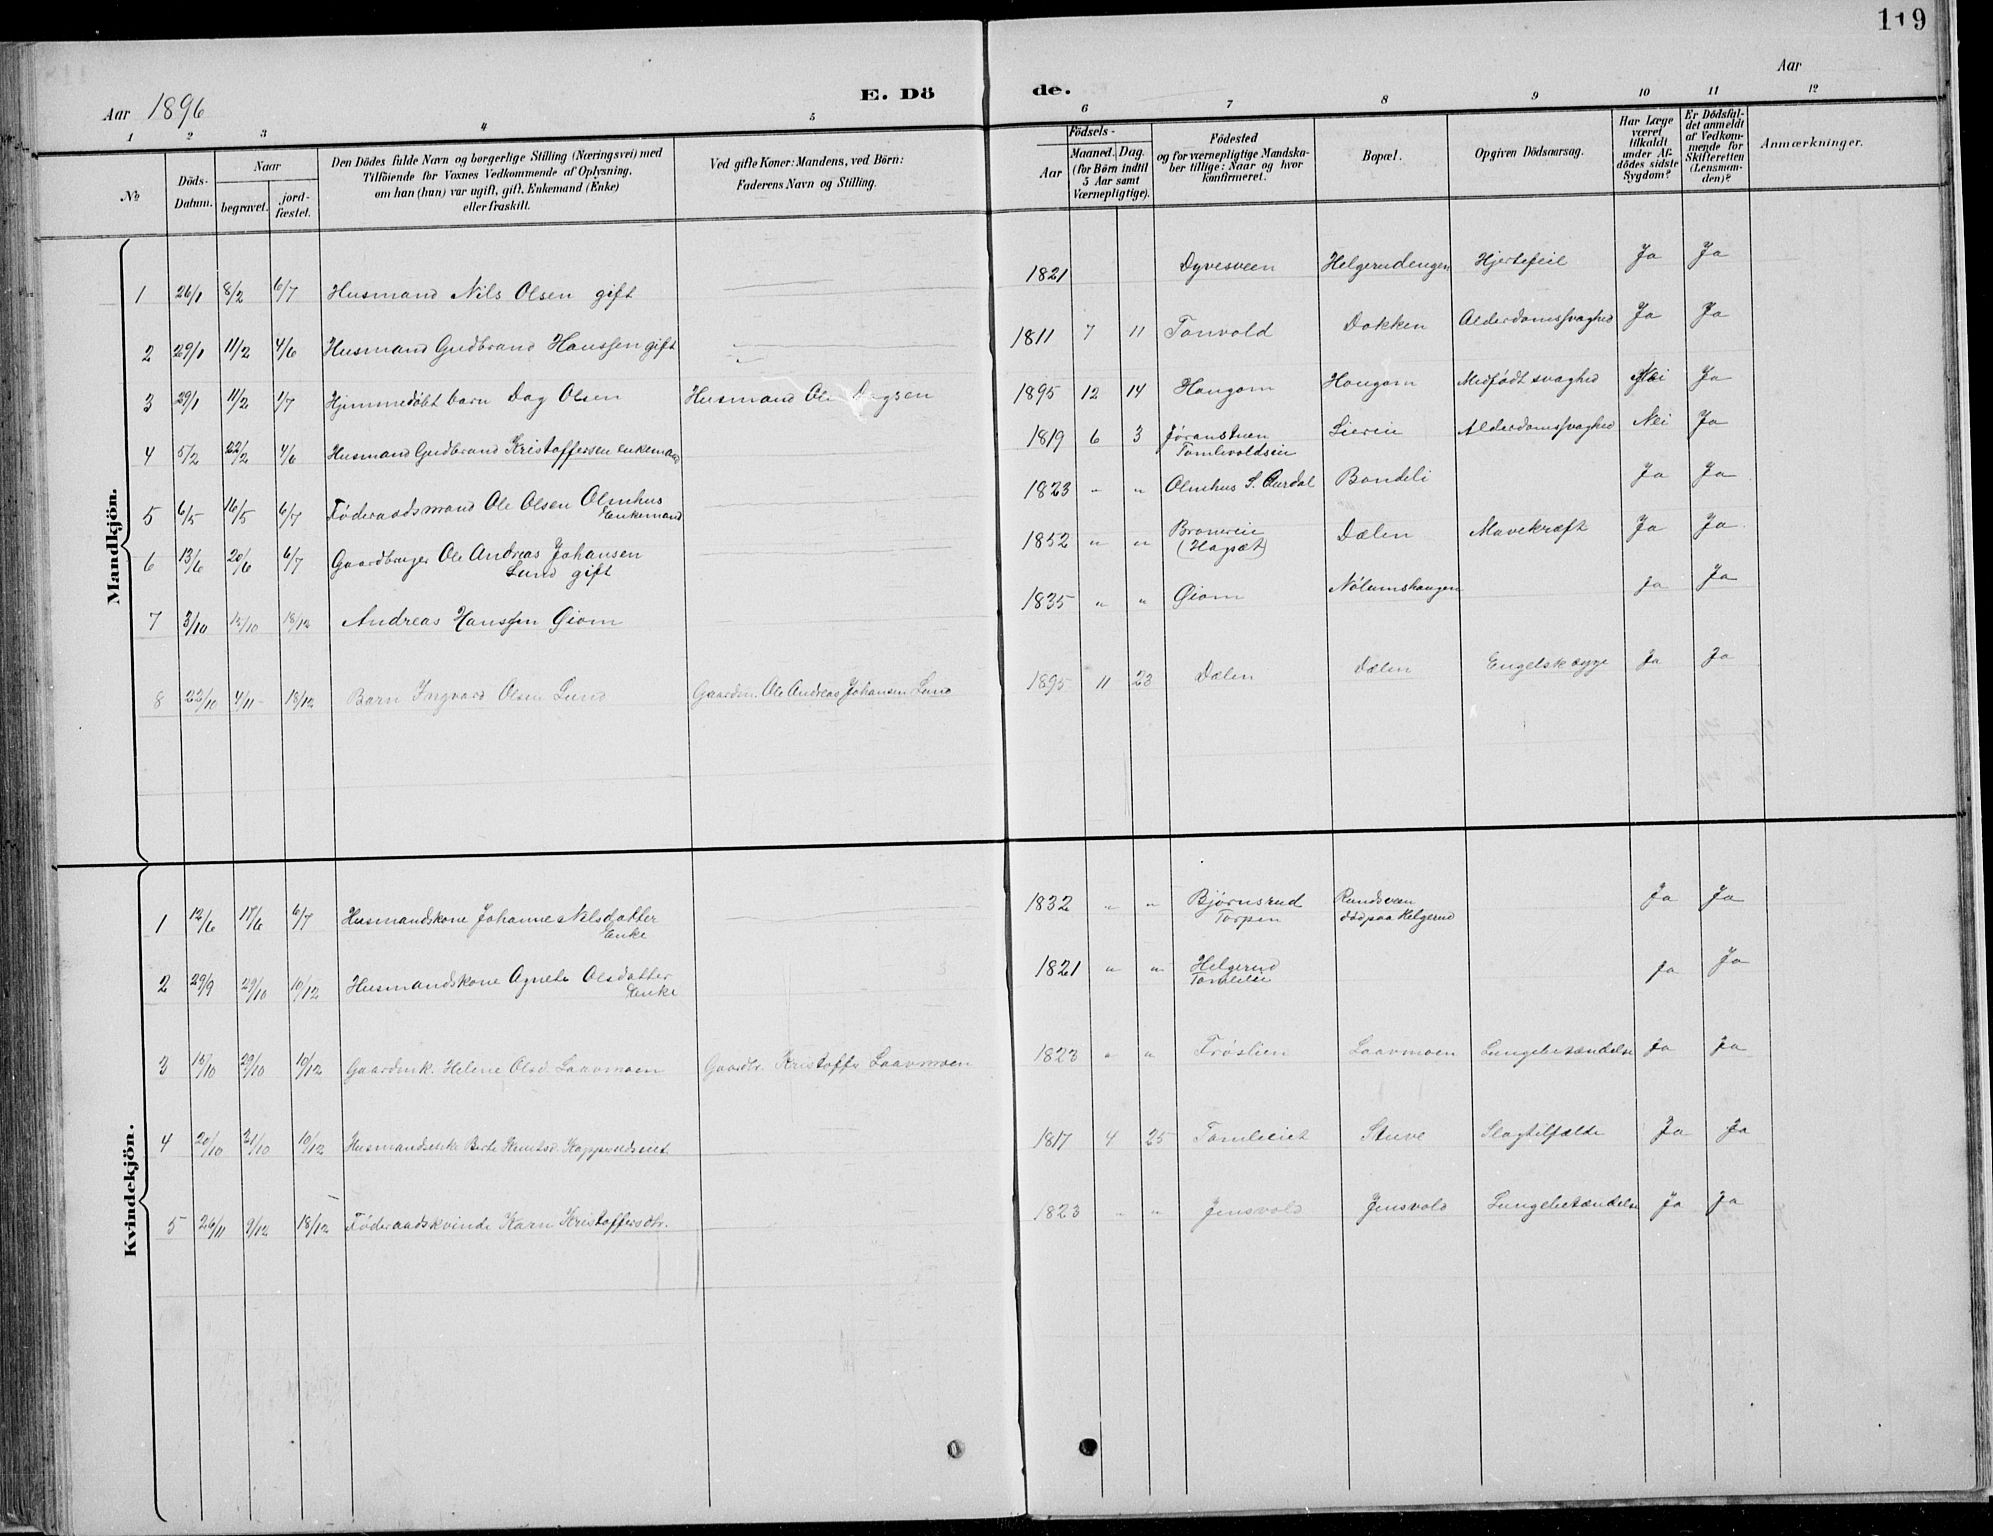 119
Aar 1896
E. Dö de.
Aar
1 2 3 4 5 6 7 8 9 10 11 12
№
Döds-Datum.
Naar
begravet.
jord-fæstet.
Den Dödes fulde Navn og borgerlige Stilling (Næringsvei) med
Tilföiende for Voxnes Vedkommende af Oplysning,
om han (hun) var ugift, gift, Enkemand (Enke)
eller fraskilt.
Ved gifte Koner: Mandens, ved Börn:
Faderens Navn og Stilling.
Födsels-
Aar
Maaned. Dag.
(for Börn indtil
5 Aar samt
Værnepligtige).
Födested
og for værnepligtige Mandska-
ber tillige: Naar og hvor
konfirmeret.
Bopæl.
Opgiven Dödsaarsag.
Har Læge
været
tilkaldt
under Af-
dödes sidste
Sygdom?
Er Dödsfal-
det anmeldt
af Vedkom-
mende for
Skifteretten
(Lensman-
den)?
Anmærkninger.
Mandkjön.
1 26/1 8/2 6/7 Husmand Nils Olsen gift 1821 Dyvesveen Helgerudengen Hjertefeil Ja Ja
2 29/1 11/2 4/6 Husmand Gudbrand Hanssen gift 1811 7 11 Tonvold Dokken Alderdomssvaghed Ja Ja
3 29/1 11/2 1/7 Hjemmedøbt barn Dag Olsen Husmand Ole Dagsen 1895 12 14 Hougom Hougom Medfødt svaghed Nei Ja
4 5/2 22/2 4/6 Husmand Gudbrand Kristoffersen enkemand 1819 6 3 Jøranstuen
Tomlevoldseie Liereie Alderdomssvaghed Nei Ja
5 6/5 16/5 6/7 Føderaadsmand Ole Olsen Olmhus
Enkemand 1823 " " Olmhus S. Aurdal Bondeli Ja Ja
6 13/6 20/6 6/7 Gaardbruger Ole Andreas Johansen
Lund gift 1852 " " (Hagsæt) Dælen Mavekræft Ja Ja
7 3/10 /10 18/12 Andreas Hanssen Giom 1835 " " Giom Nølumshaugen Ja Ja
8 22/10 4/11 18/12 Barn Ingvard Olsen Lund Gaardm. Ole Andreas Johansen Lund 1895 11 23 Dælen Dælen Engelsk syge Ja Ja
Kvindekjön.
1 12/6 17/6 6/7 Husmandskone Johanne Nilsdatter
Enke 1832 " " Bjørnsrud
Torpen Rundsveen
død paa Helgerud Ja Ja
2 29/9 29/10 10/12 Husmandskone Agnete Olsdatter
Enke 1821 " " Helgerud Ja Ja
3 15/10 29/10 10/12 Gaardmk. Helene Olsd. Laavmoen Gaardbr. Kristoffer Laavmoen 1823 " " Frøslien Laavmoen Lungebetændelse Ja Ja
4 20/10 31/10 10/12 Husmandsenke Berte Knutsd. Kopperudseiet 1817 4 25 Tomleeiet Stuve Slagtilfælde Ja Ja
5 26/11 9/12 18/12 Føderaadskvinde Karn Kristoffersdtr. 1823 " " Jensvold Jensvold Lungebetændelse Ja Ja